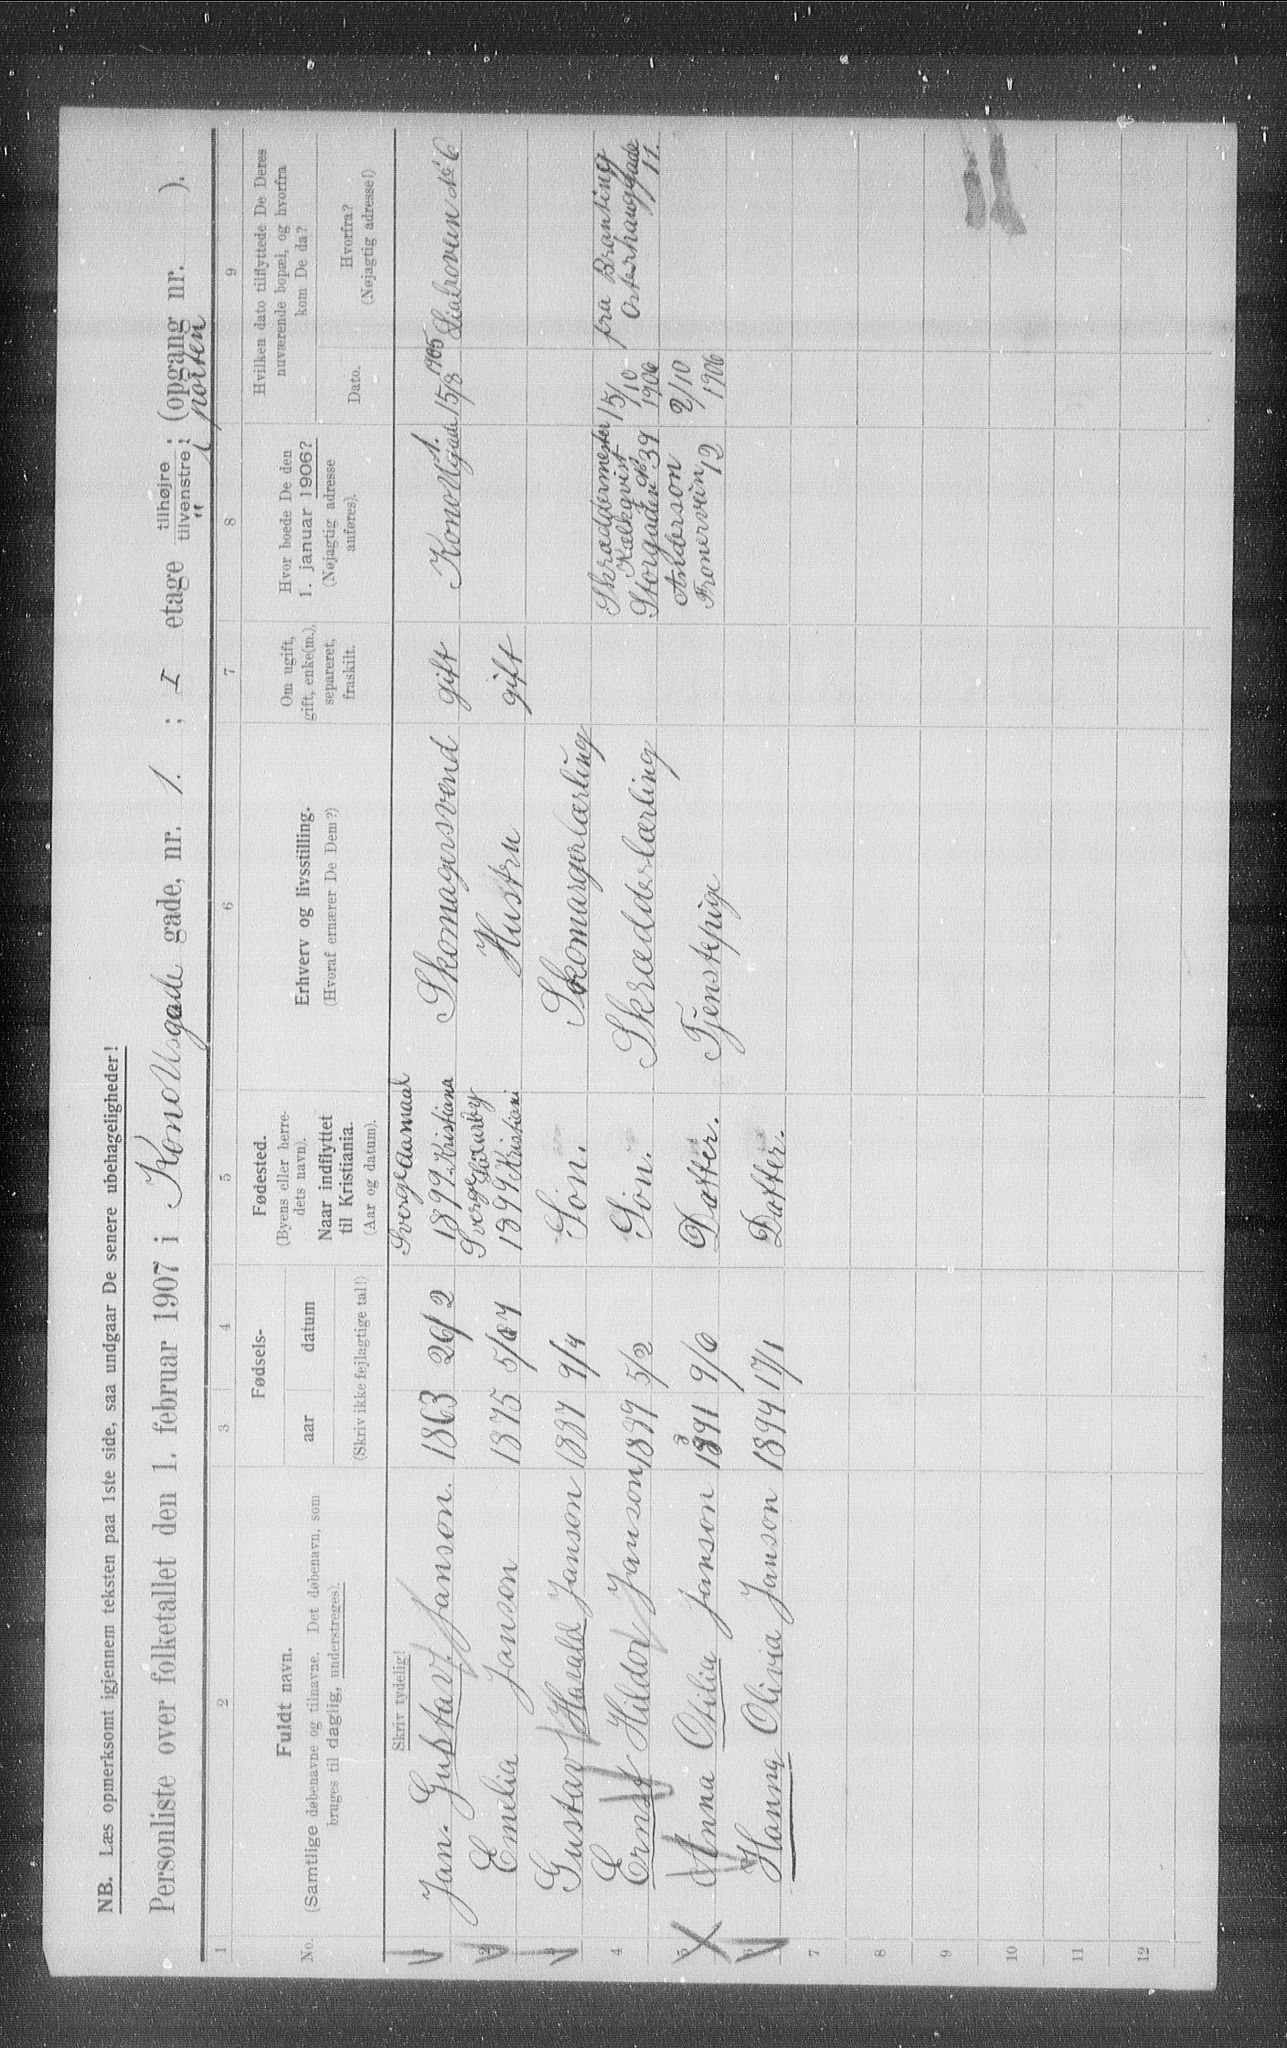 NB. Læs opmerksomt igjennem teksten paa 1ste side, saa undgaar De senere ubehageligheder!
Personliste over folketallet den 1. februar 1907 i Konollsgade gade, nr. 1. ; I etage tilhøjre tilvenstre ; (opgang nr. ).
" i porten
1 2 3 4 5 6 7 8 9
No.
Fuldt navn.
(Samtlige døbenavne og tilnavne. Det døbenavn, som
bruges til daglig, understreges).
Fødsels-
aar datum
(Skriv ikke fejlagtige tal!)
Fødested.
(Byens eller herre-
dets navn).
Naar indflyttet
til Kristiania.
(Aar og datum).
Erhverv og livsstilling.
(Hvoraf ernærer De Dem?)
Om ugift,
gift, enke(m.),
separeret,
fraskilt.
Hvor boede De den
1. januar 1906?
(Nøjagtig adresse
anføres).
Hvilken dato tilflyttede De Deres
nuværende bopæl, og hvorfra
kom De da?
Dato.
Hvorfra?
(Nøjagtig adresse!)
Skriv tydelig!
1 Jan. Gustav. Janson. 1863 26/2 Sverge aamaal 1899 Kristiana Skomagersvend gift Konollsgade 1. 15/8 1905 No 6
2 Emelia Janson 1875 Sverge 1899 Kristiani Hustru gift
3 Gustav Harald Janson 1887 9/4 Søn. Skomargerlærling
4 Ernst Hildor Janson 1889 5/2 Søn. Skrædderlærling Skræddermester Kælkqvist Storgaden No 39 15/10 1906 fra Branting Osterhausgade 11.
5 Anna Otilia Janson 1891 9/6 Datter. Tjenstepige Anderson Fronervein 12 2/10 1906
6 Hanna Olivia Janson 1894 17/1 Datter.
7
8
9
10
11
12